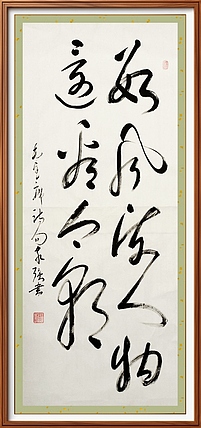 数风流人物
還看今朝
毛主席诗句